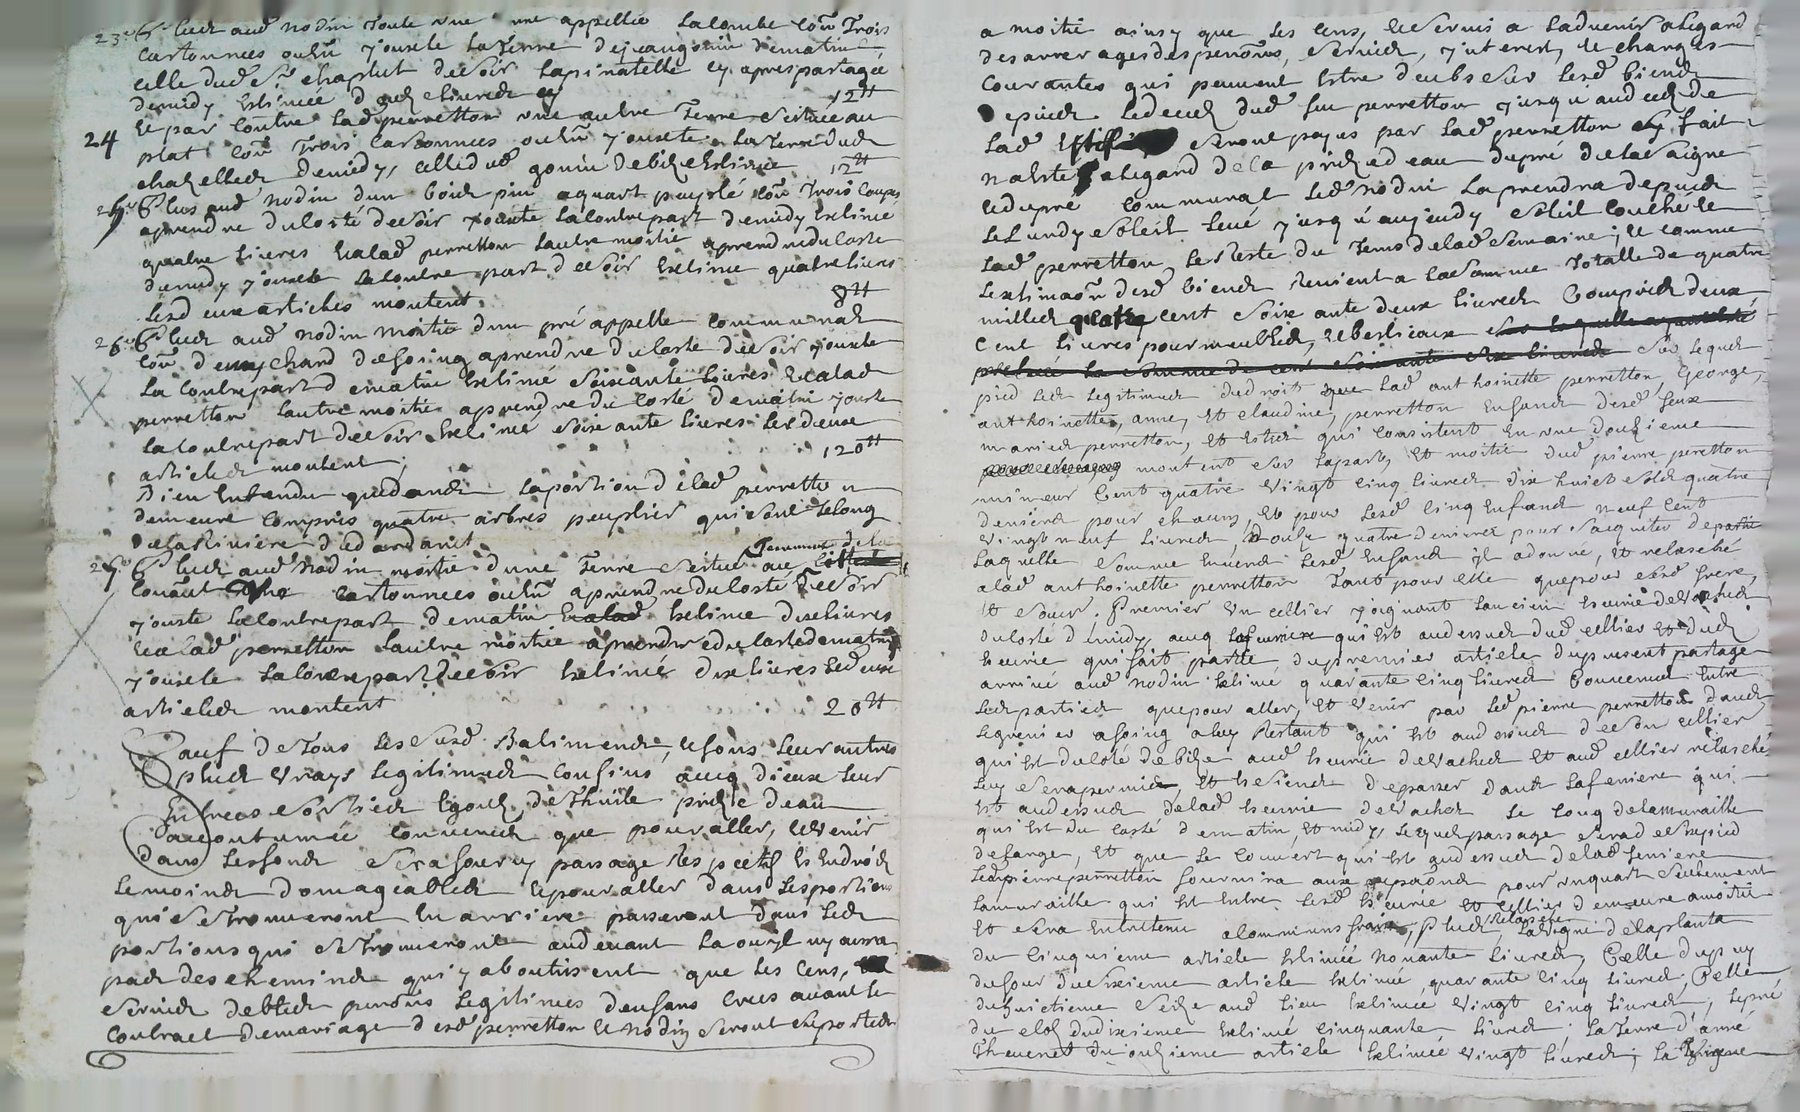 23e Plus aud nodin toute une terre appellée la combe con.t Trois
Cartonnees ou en.n jouxte la terre de jean gonin de matin
celle dud Sr chaplut de soir la pinatelle cy apres partagée
de midy estimée douze livres cy 12tt
24 Et par contre lad perretton une autre Terre scituee au
plat con.t Trois Cartonnees ou en.n jouxte la Terre dud
de midy, celle dud gonin de bize estimée 12tt
25e Plus aud nodin d'un bois pin aquart con.t Trois Coupes
a prendre du costé de soir jouxte la contrepart de midy estime
quatre livres et alad perretton l'autre moitié a prendre du costé
de midy jouxte la contre part de soir estimé quatre livres
les deux articles montent 8tt
26e Plus aud nodin moitié d'un pré appellé communal
con.t demy chard de foing a prendre du costé de soir jouxte
la contrepart de matin estimé soixante livres et alad
perretton l'autre moitié a prendre du costé de matin jouxte
la contrepart de soir estimé soixante livres les deux
articles montent ; 120tt
Bien entendu que dans la portion de lad perretton
demeure compris quatre arbres peuplier qui sont le long
27e Plus aud Nodin moitié d'une Terre scituee au
contenant cartonnees ou en.n a prendre du costé de soir
jouxte la contrepart de matin estimé dix livres
et a lad perretton l'autre moitié a prendre du costé de matin
jouxte la contrepart de soir estimé dix livres les deux
articles montent 20tt
Sauf de Tous les susd. Batiments, et fons leur autres
plus vrays legitimes confins avec d'iceux leur
Entrees sorties Egouts de Thuile prize d'eau
accoutumée convenus que pour aller, et venir
dans les fonds sera fourny passage les endroits
le moins domageables et pour aller dans les portions
qui se trouveront en arriere passeront dans les
portions qui se trouveront au devant la ou il ny aura
pas des chemins qui y aboutissent que les cens,
servis debtes pensions legitimes d'enfans crees avant le
Contract de mariage desd perretton et Nodin seront suportes
a moitié ainsy que les cens, et servis a l'advenir a legard
des arrerages des pensions, servis, interest, et charges
Courantes qui peuvent estre deubs sur lesd biens
Depuis le deces dud feu perretton jusqu'au deces de
lad seront payes par lad perretton
a legard de la prize d'eau du pré de la saigne
et du pré communal led nodin la prendra depuis
le Lundy soleil levé jusqu'au jeudy soleil couché et
lad perretton le reste du Tems de lad semaine ; et comme
l'estimaon desd biens revient a la somme Totalle de quatre
milles quatre cent soixante deux livres Compris deux
Cent livres pour meubles, et bestiaux
sur lequel
pied les legitimes du droit que lad anthoinette perretton, George,
anthoinette, anne, et claudine, perretton Enfans desd feux
maries perretton, et qui consistent En une douzieme
montent sur la part, et moitié dud pierre perretton
mineur Cent quatre vingt cinq livres dix huict sols quatre
deniers pour chacun et pour lesd cinq Enfans neuf Cent
vingt neuf livres, Douze quatre deniers pour s'acquiter de
Laquelle somme Envers lesd Enfans il a donné, et relasché
a lad anthoinette perretton Tant pour elle que pour sesd frere,
et soeurs. Premier un cellier joignant l'ancien Ecurie de Vaches
du costé de midy avec la feniere qui est au dessus dud cellier et dud
Ecurie qui fait partie du premier article du present partage
arrivé aud nodin estimé quarante cinq livres Convenu Entre
les parties que pour aller, et venir par led pierre perretton dans
le grenier a foing a luy restant qui est au dessus de son cellier
qui est du coté de bize aud Ecurie de vaches et aud cellier relasché
luy sera permis, et de passer dans la feniere qui
est au dessus de lad Ecurie de vaches le long de la muraille
qui est du costé de matin, et midy, lequel passage sera de six pied
de large, et que le couvert qui est au dessus de lad feniere
led pierre perretton fournira aux reparaons pour un quart seulement
la muraille qui est entre lesd Ecurie et cellier demeure a moitié
et sera Entretenu a communs fraix, Plus relasche la vigne de la planta
du cinquieme article estimée nonante livres, Celle du puy
du four du sixieme article estimée, quarante cinq livres, Celle
du huictieme size aud lieu estimée vingt cinq livres, le pré
du clos du dixieme estimé cinquante livres. la Terre d'anné
Thevenet du onzieme article estimée vingt livres ; la vigne